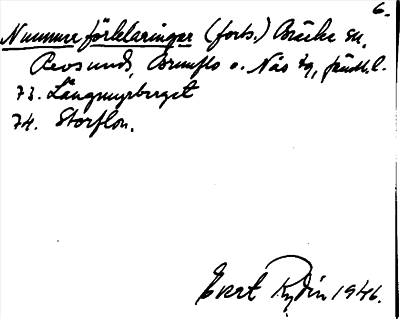 6.
Nummerförklaringar (forts.) Bräcke sn,
Revsunds, Brunflo o. Näs sg, Jämtl. l.
73. Långmyrberget
74. Storflon.
Evert Rydin 1946.